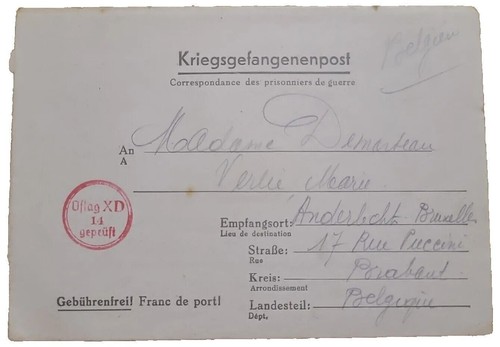 Kriegsgefangenenpost
Belgien
Correspondance des prisonniers de guerre
An Madame Demarteau
A
Verlié Marie
Oflag XD
14
geprüft
Empfangsort: Anderlecht-Bruxelles
Lieu de destination
Straße: 17 Rue Puccini
Rue
Kreis: Brabant
Arrondissement
Gebührenfrei! Franc de port!
Landesteil: Belgique
Dépt.